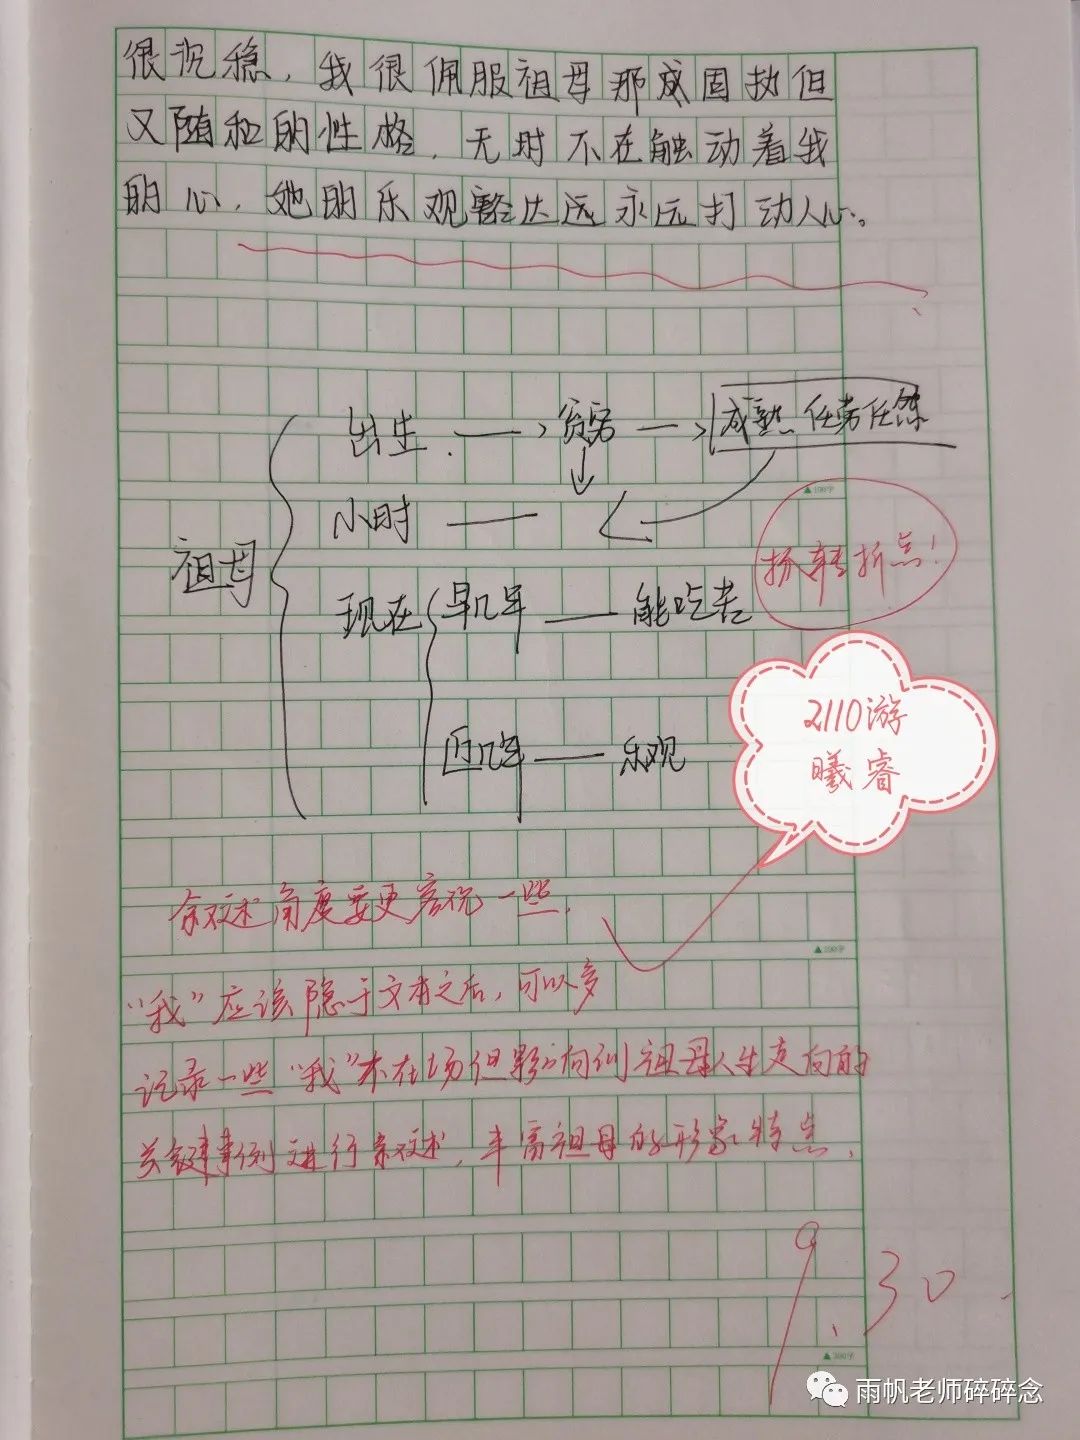 很沉稳，我很佩服祖母那成固执但
又随和的性格，无时不在触动着我
的心，她的乐观豁达远永远打动人心。
出生 —→ 贫穷 —→ 成熟 任劳任怨
小时 —
祖母
现在 早几年 — 能吃苦
近几年 — 乐观
扬转折点！
2110游
曦睿
叙述角度要更客观一些，
“我”应该隐于文本之后，可以多
记录一些“我”不在场但影响到祖母人生走向的
关键事例进行叙述，丰富祖母的形象特点，
9.30
▲100字
▲200字
▲300字
雨帆老师碎碎念